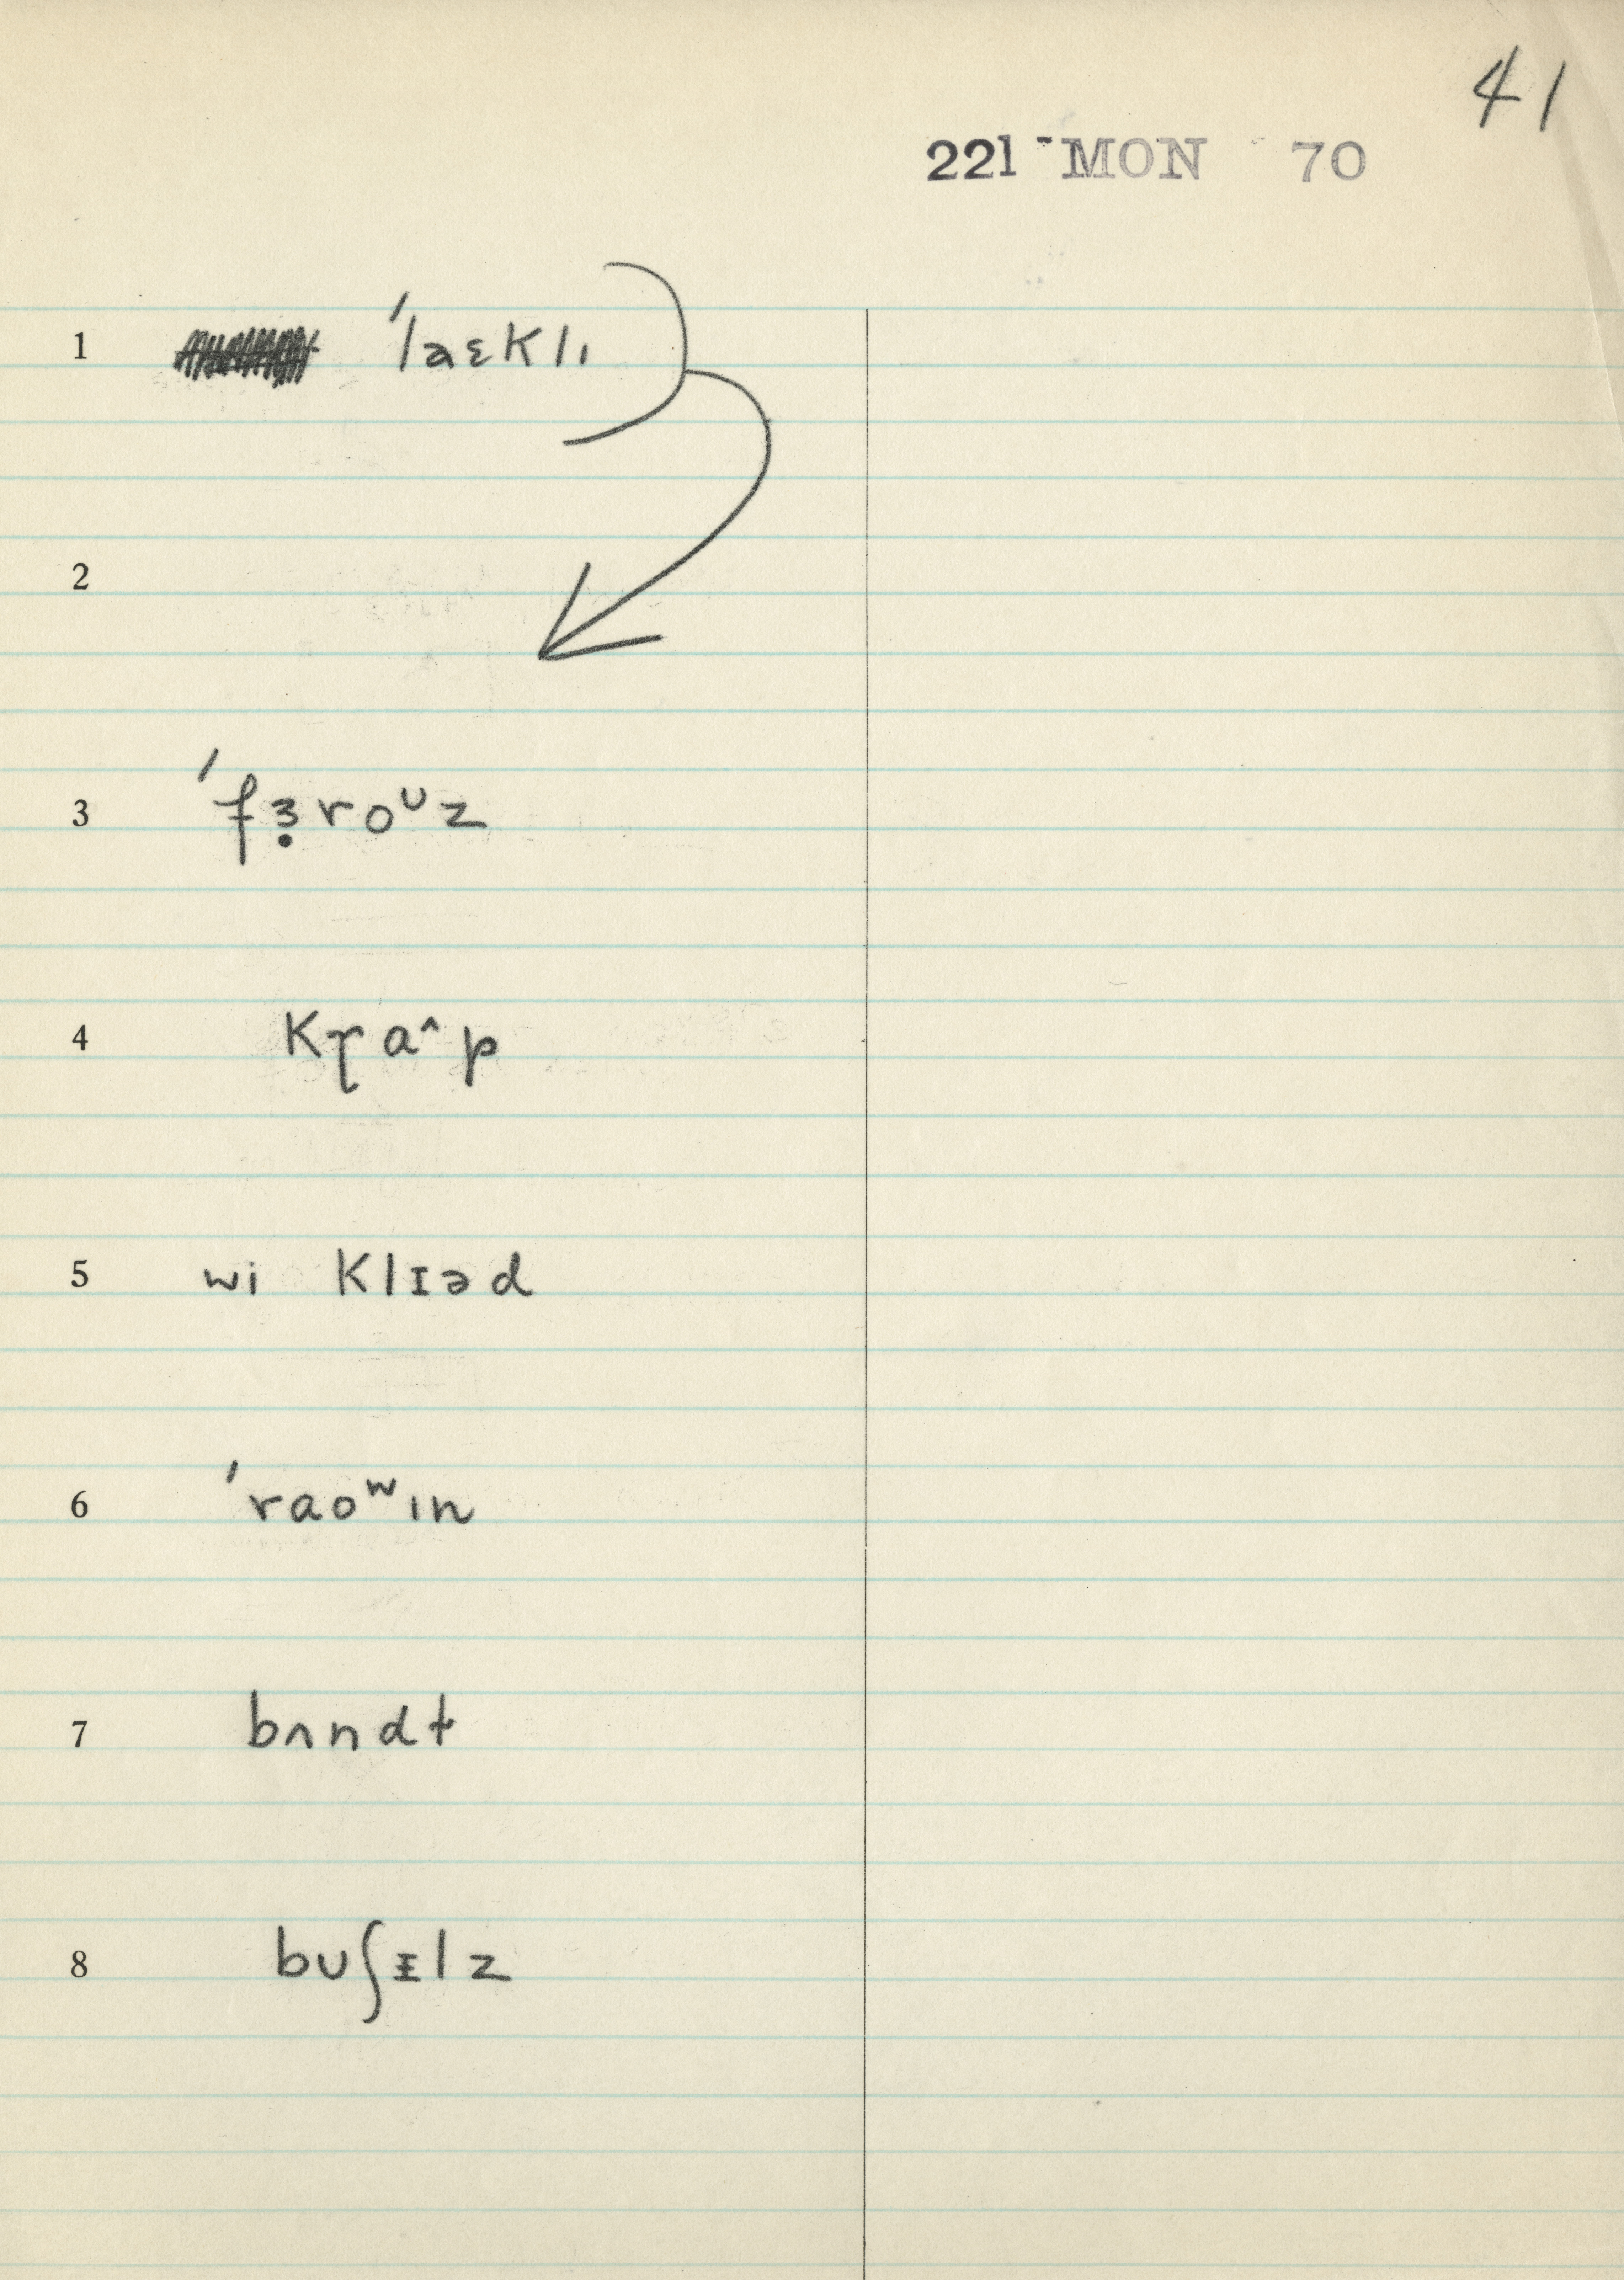 41
221 MON 70
1 ˈlaɛklɪ
2
3 ˈfɜ̣roᶷz
4 kɽa^p
5 wi klɪəd
6 ˈraoʷɪn
7 bʌndt
8 bʊʃᵻlz